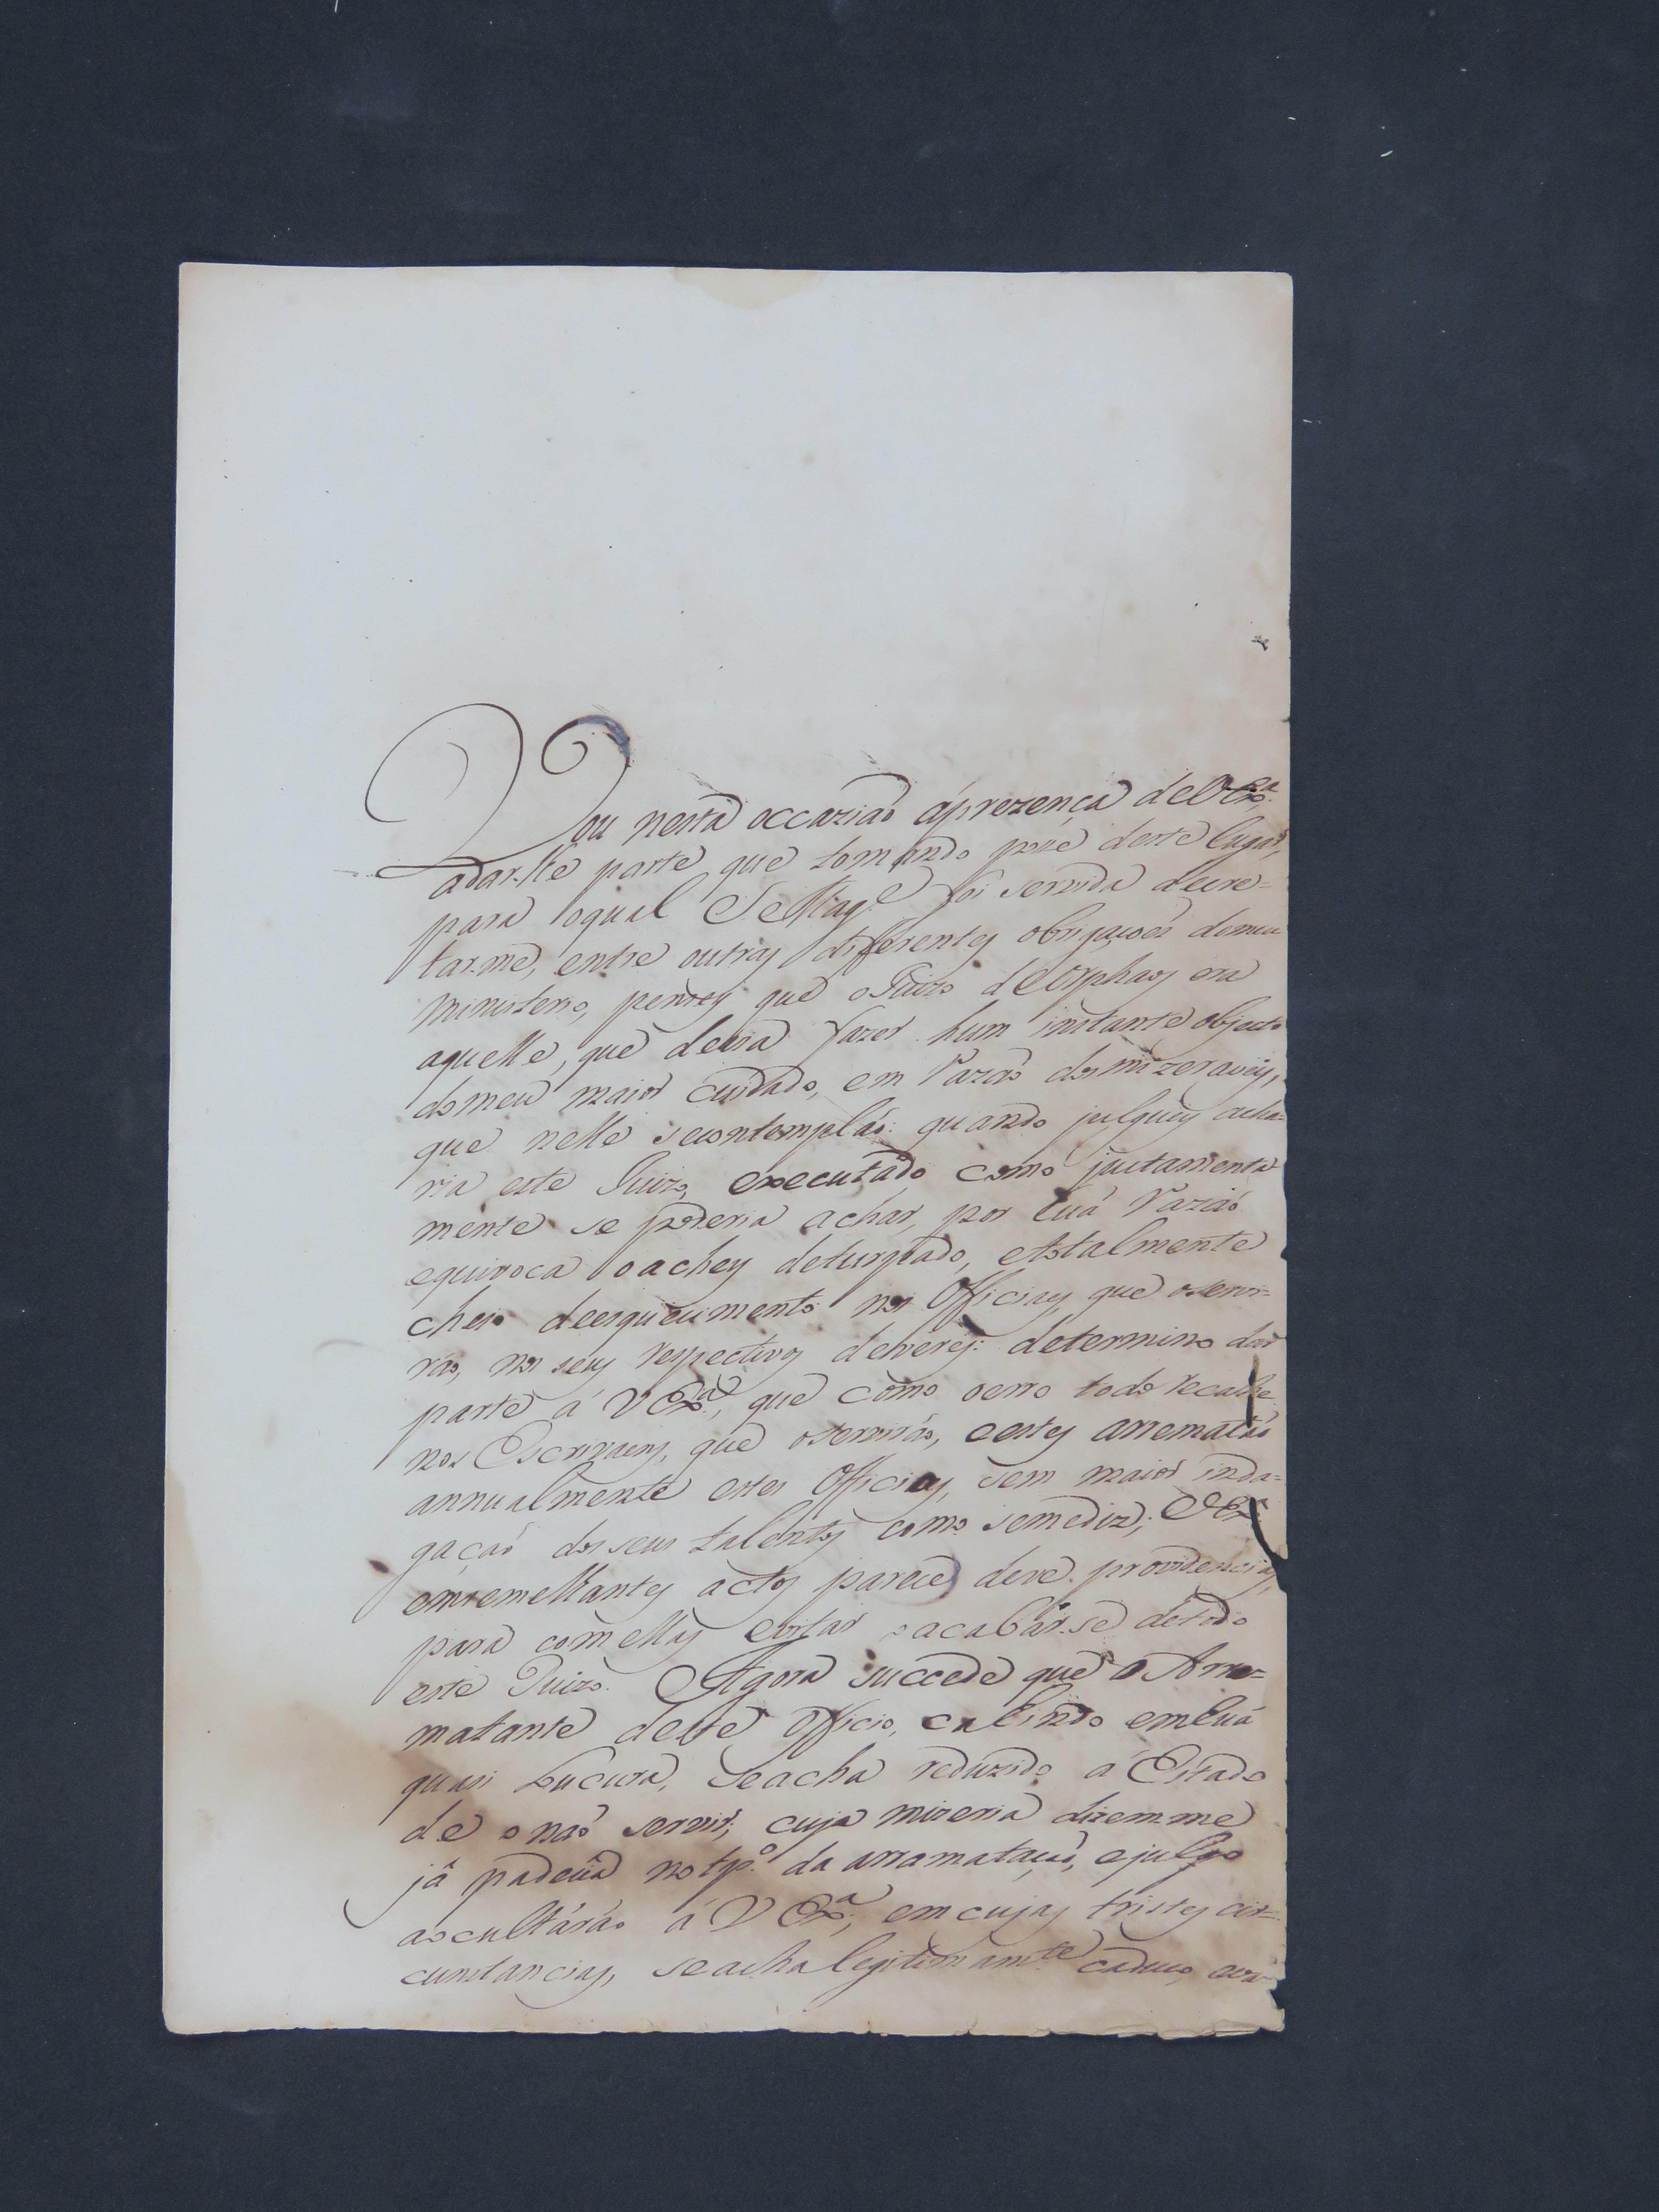 Vou nesta occaziaõ áprezença deVExª.
adar-lhe parte que tomando posse deste lugar,
para oqual S. Mag.e foi servida decre=
tar-me, entre outras diferentes obrigaçoẽs demeu
ministerio, pensey que oJuizo deOrphaos era
aquelle, que devia fazer hum instante objecto
domeu maior cuidado, em razaõ dos mizeraveis,
que nelle secontemplaõ: quando julguey acha-
ria este Juizo, executado como justamenta
mente se poderia achar, por huá razaõ
equivoca oachey deturpado, etotalmente
cheio deesquecimento nos Officiaes, que oservi=
raõ, nos seus respectivos deveres: determino dar
parte á VExª., que como oerro todo recahe
nos Escrivaens, que oserviráo, eestes arremataõ
annualmente estes Officios, sem maior inda=
gaçaõ dos seus talentos como semediz; VExª.
emsemelhantes actos parece deve providenciar,
para comellas evitar oacabar-se detodo
este Juizo. Agora succede que o Arre=
matante deste Officio, cahindo emhuá
quasi Loucura, seacha reduzido a Estado
de onaõ servir; cuja mizeria dizem-me
já padecia notpº. da arramataçaõ, ejulgo
aocultáráo á VExª., emcujas tristes cir=
cunstancias, seacha legitimamte. caduco,